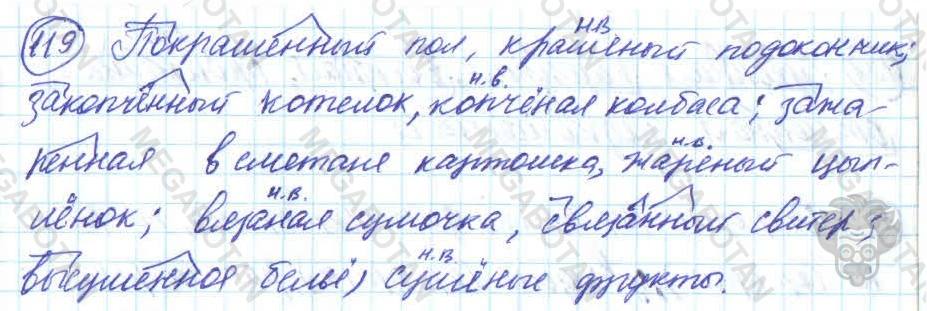 119 Покрашенный пол, крашеный подоконник;
закопчённый котелок, копчёная колбаса; зажа-
ренная в сметане картошка, жареный цып-
лёнок; вязаная сумочка, связанный свитер;
высушенное бельё, сушёные фрукты.
н.в
н.в.
н.в.
н.в.
н.в
MEGABOTAN